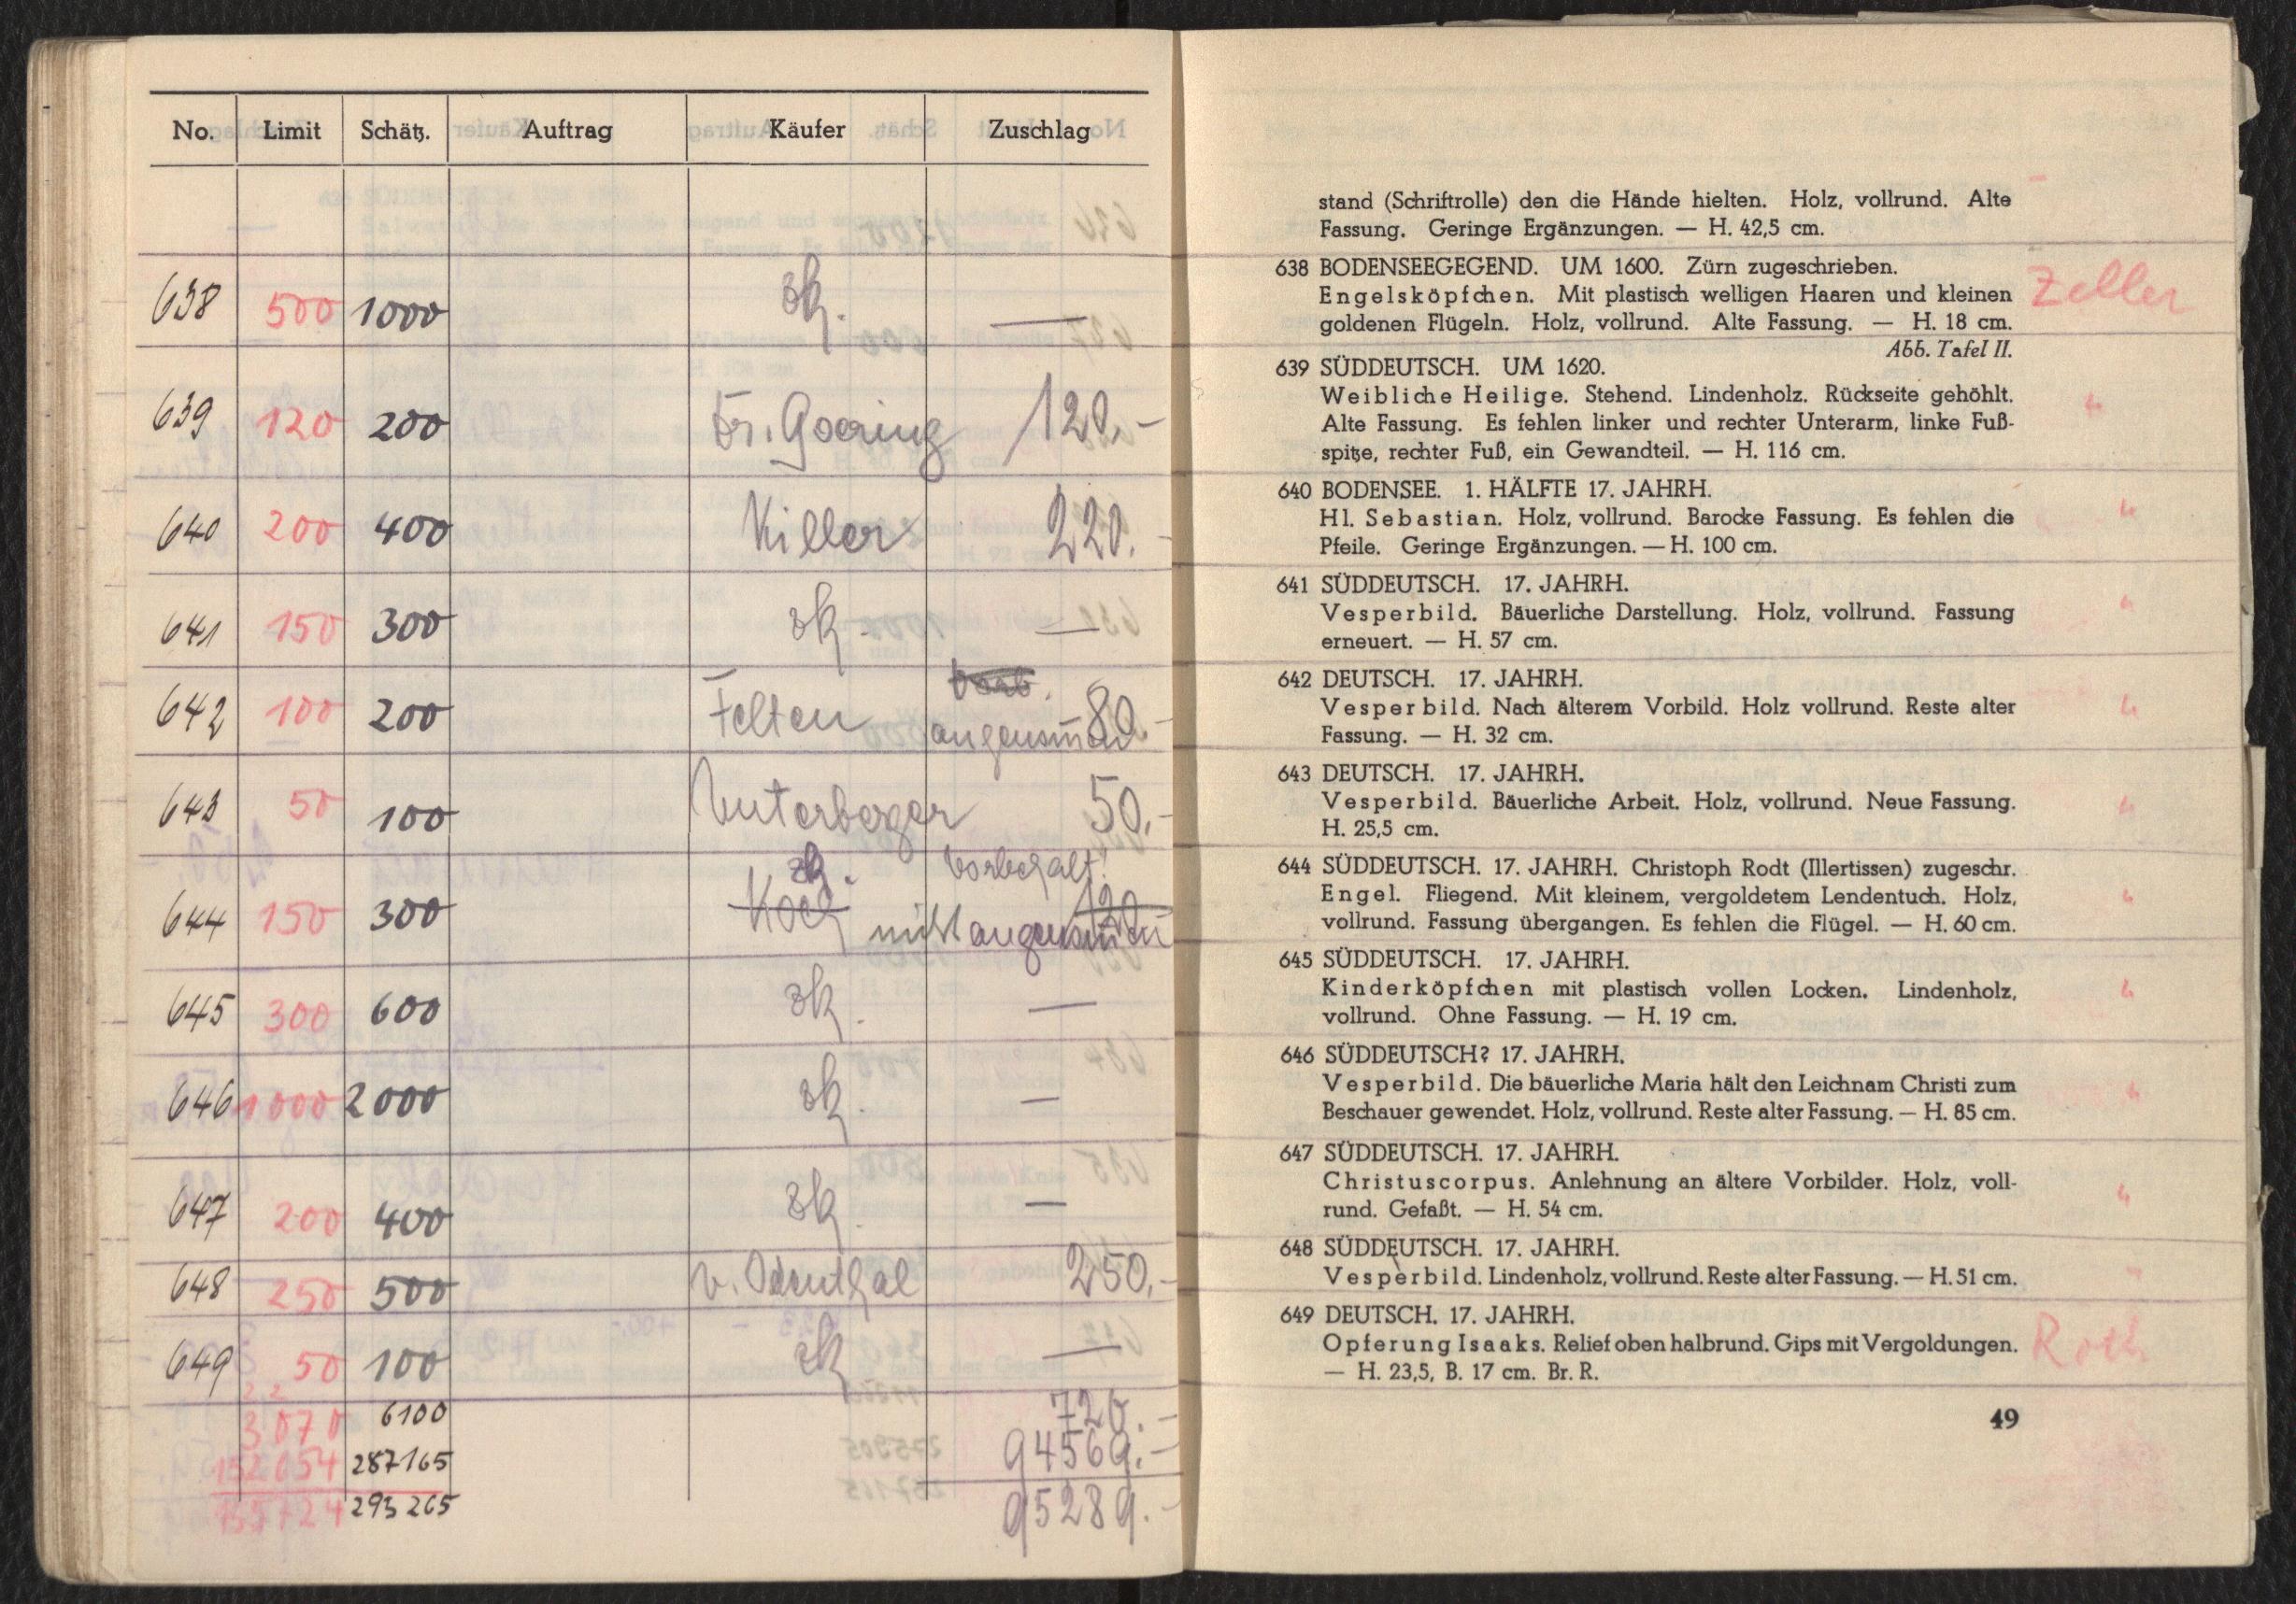 No. Limit Schätz. Auftrag Käufer Zuschlag
638 500 1000 zk. —
639 120 200 Dr. Goering 120.-
640 200 400 Killers 220.-
641 150 300 zk. —
642 100 200 Felten angenommen 80.-
643 50 100 Unterberger 50.-
zk. Vorbehalt!
644 150 300 Koch nicht angenommen 120
645 300 600 zk. —
646 1000 2000 zk. —
647 200 400 zk. —
648 250 500 v. Odenthal 250.-
649 50 100 zk —
3070 6100 720.-
152654 287165 94569.-
155724 293265 95289.-
stand (Schriftrolle) den die Hände hielten. Holz, vollrund. Alte
Fassung. Geringe Ergänzungen. — H. 42,5 cm.
638 BODENSEEGEGEND. UM 1600. Zürn zugeschrieben.
Engelsköpfchen. Mit plastisch welligen Haaren und kleinen Zeller
goldenen Flügeln. Holz, vollrund. Alte Fassung. — H. 18 cm.
Abb. Tafel II.
639 SÜDDEUTSCH. UM 1620.
Weibliche Heilige. Stehend. Lindenholz. Rückseite gehöhlt. "
Alte Fassung. Es fehlen linker und rechter Unterarm, linke Fuß-
spitze, rechter Fuß, ein Gewandteil. — H. 116 cm.
640 BODENSEE. 1. HÄLFTE 17. JAHRH.
Hl. Sebastian. Holz, vollrund. Barocke Fassung. Es fehlen die "
Pfeile. Geringe Ergänzungen. — H. 100 cm.
641 SÜDDEUTSCH. 17. JAHRH.
Vesperbild. Bäuerliche Darstellung. Holz, vollrund. Fassung "
erneuert. — H. 57 cm.
642 DEUTSCH. 17. JAHRH.
Vesperbild. Nach älterem Vorbild. Holz vollrund. Reste alter "
Fassung. — H. 32 cm.
643 DEUTSCH. 17. JAHRH.
Vesperbild. Bäuerliche Arbeit. Holz, vollrund. Neue Fassung. "
H. 25,5 cm.
644 SÜDDEUTSCH. 17. JAHRH. Christoph Rodt (Illertissen) zugeschr.
Engel. Fliegend. Mit kleinem, vergoldetem Lendentuch. Holz, "
vollrund. Fassung übergangen. Es fehlen die Flügel. — H. 60 cm.
645 SÜDDEUTSCH. 17. JAHRH.
Kinderköpfchen mit plastisch vollen Locken. Lindenholz, "
vollrund. Ohne Fassung. — H. 19 cm.
646 SÜDDEUTSCH? 17. JAHRH.
Vesperbild. Die bäuerliche Maria hält den Leichnam Christi zum "
Beschauer gewendet. Holz, vollrund. Reste alter Fassung. — H. 85 cm.
647 SÜDDEUTSCH. 17. JAHRH.
Christuscorpus. Anlehnung an ältere Vorbilder. Holz, voll- "
rund. Gefaßt. — H. 54 cm.
648 SÜDDEUTSCH. 17. JAHRH.
Vesperbild. Lindenholz, vollrund. Reste alter Fassung. — H. 51 cm. "
649 DEUTSCH. 17. JAHRH.
Opferung Isaaks. Relief oben halbrund. Gips mit Vergoldungen. Roth
— H. 23,5, B. 17 cm. Br. R.
49